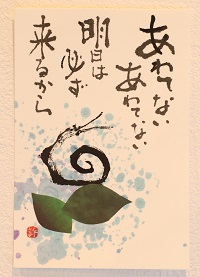 あわてない
あわてない
明日は
必ず
来るから